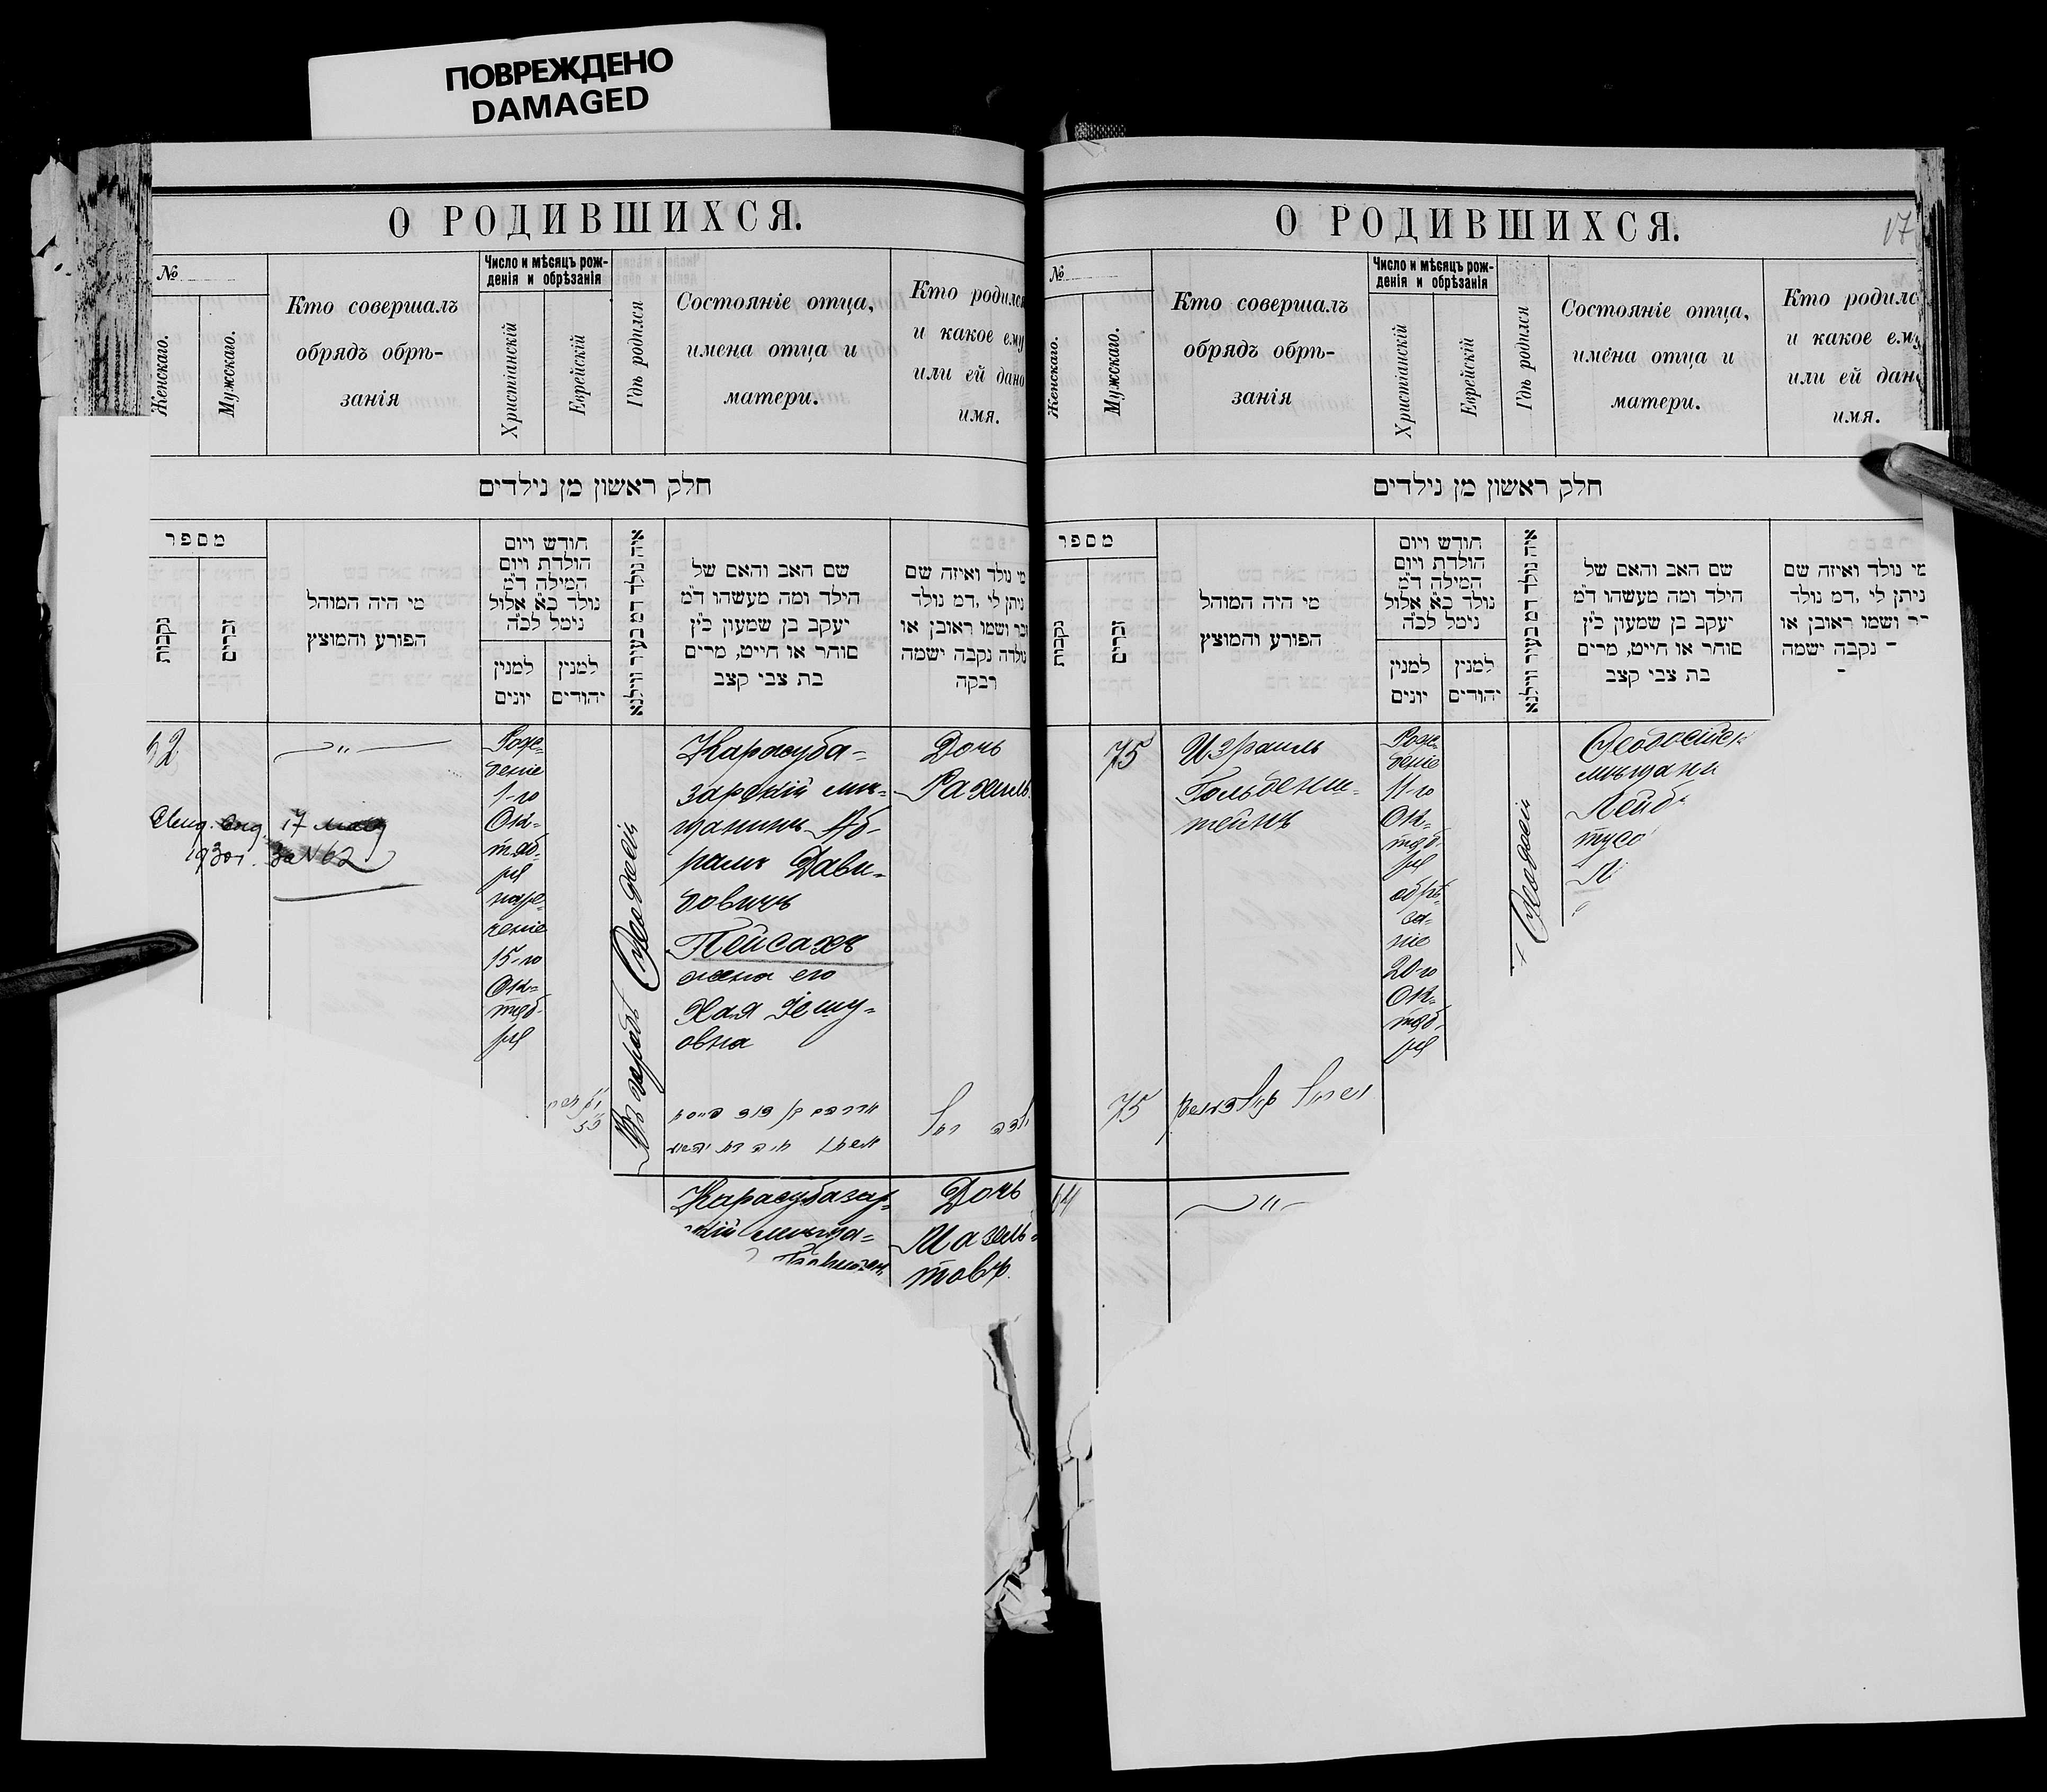 ПОВРЕЖДЕНО
DAMAGED
О РОДИВШИХСЯ.
№
Женскаго.
Мужскаго.
Кто совершалъ
обрядъ обрѣ-
занія
Число и мѣсяцъ рож-
денія и обрѣзанія
Христіанскій
Еврейскій
Годъ родился
Состояніе отца,
имена отца и
матери.
Кто родился
и какое ему
или ей дано
имя.
חלק ראשון מן נילדים
מספר
נקבות
זכרים
מי היה המוהל
הפורע והמוצץ
חודש ויום
הולדת ויום
המילה ד״מ
נולד כ״א אלול
נימל לכ״ה
למנין
יונים
למנין
יהודים
איה נולד דמ בעיר ווילנא
שם האב והאם של
הילד ומה מעשהו ד״מ
יעקב בן שמעון כ״ץ
סוחר או חייט, מרים
בת צבי קצב
מי נולד ואיזה שם
ניתן לי, דמ נולד
זכר ושמו ראובן או
נולדה נקבה ישמה
רבקה
62
Рож-
деніе
1-го
Ок-
тяб-
ря
наре-
ченіе
15-го
Ок-
тяб-
ря
Въ городѣ Ѳеодосіи
Карасуба-
зарскій мѣ-
щанинъ Аб-
рамъ Дави-
довичъ
Пейсахъ
жена его
Хая Іешу-
овна
Дочь
Рахиль
17
1930г. за № 62
Карасубазар-
скій мѣща-
Дочь
Мазель-
товъ.
О РОДИВШИХСЯ.
17
№
Женскаго.
Мужскаго.
Кто совершалъ
обрядъ обрѣ-
занія
Число и мѣсяцъ рож-
денія и обрѣзанія
Христіанскій
Еврейскій
Годъ родился
Состояніе отца,
имена отца и
матери.
Кто родилс
и какое ему
или ей дан
имя.
חלק ראשון מן נילדים
מספר
נקבות
זכרים
מי היה המוהל
הפורע והמוצץ
חודש ויום
הולדת ויום
המילה ד״מ
נולד כ״א אלול
נימל לכ״ה
למנין
יונים
למנין
יהודים
איה נולד דמ בעיר ווילנא
שם האב והאם של
הילד ומה מעשהו ד״מ
יעקב בן שמעון כ״ץ
סוחר או חייט, מרים
בת צבי קצב
מי נולד ואיזה שם
ניתן לי, דמ נולד
ושמו ראובן או
נקבה ישמה
75
Израиль
Гольденш-
тейнъ
Рож-
деніе
11-го
Ок-
тяб-
ря
обрѣ-
за-
ніе
20-го
Ок-
тяб-
ря
Ѳеодосіи
Ѳеодосійск
мѣщани
Лейб
75
64